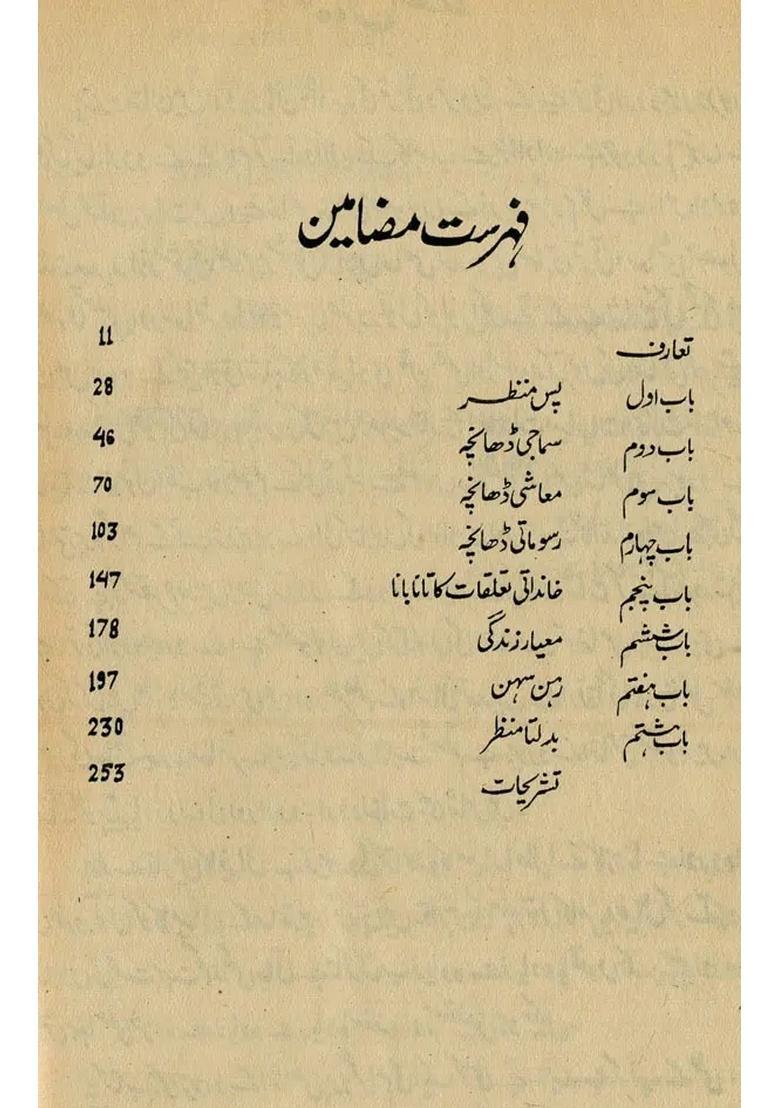 فہرست مضامین
تعارف 11
باب اول پس منظر 28
باب دوم سماجی ڈھانچہ 46
باب سوم معاشی ڈھانچہ 70
باب چہارم رسوماتی ڈھانچہ 103
باب پنجم خاندانی تعلقات کا تانا بانا 147
باب ششم معیار زندگی 178
باب ہفتم رہن سہن 197
باب ہشتم بدلتا منظر 230
تشریحات 253